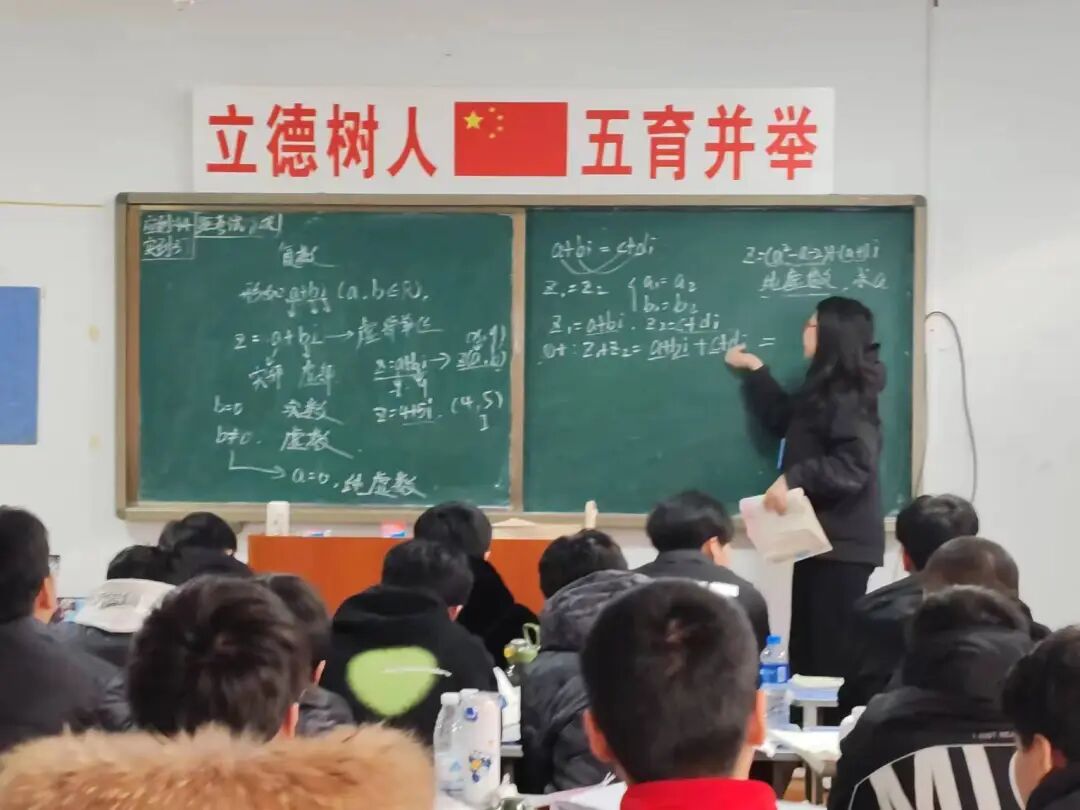 立德树人 五育并举
复数
形如:a+bi (a,b∈R),
z=a+bi→虚数单位
实部 虚部
b=0 实数
b≠0. 虚数
a=0, 纯虚数
(x,y)
z=a+bi→z(a,b)
z=4+5i. (4,5)
I
a+bi=c+di
z₁=z₂
a₁=a₂
b₁=b₂
z₁=a+bi. z₂=c+di
z₁+z₂=a+bi+c+di=
z=(a²-a-2)+(a+1)i
纯虚数,求a
MI